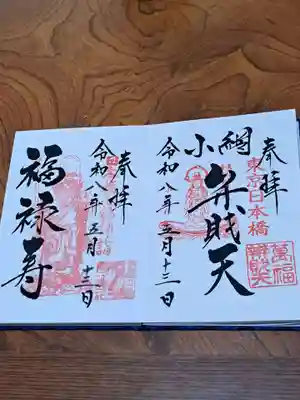 奉拝
東京日本橋
小網
弁財天
萬福
舞財天
令和八年五月十三日
奉拝
福禄寿
令和八年五月十三日